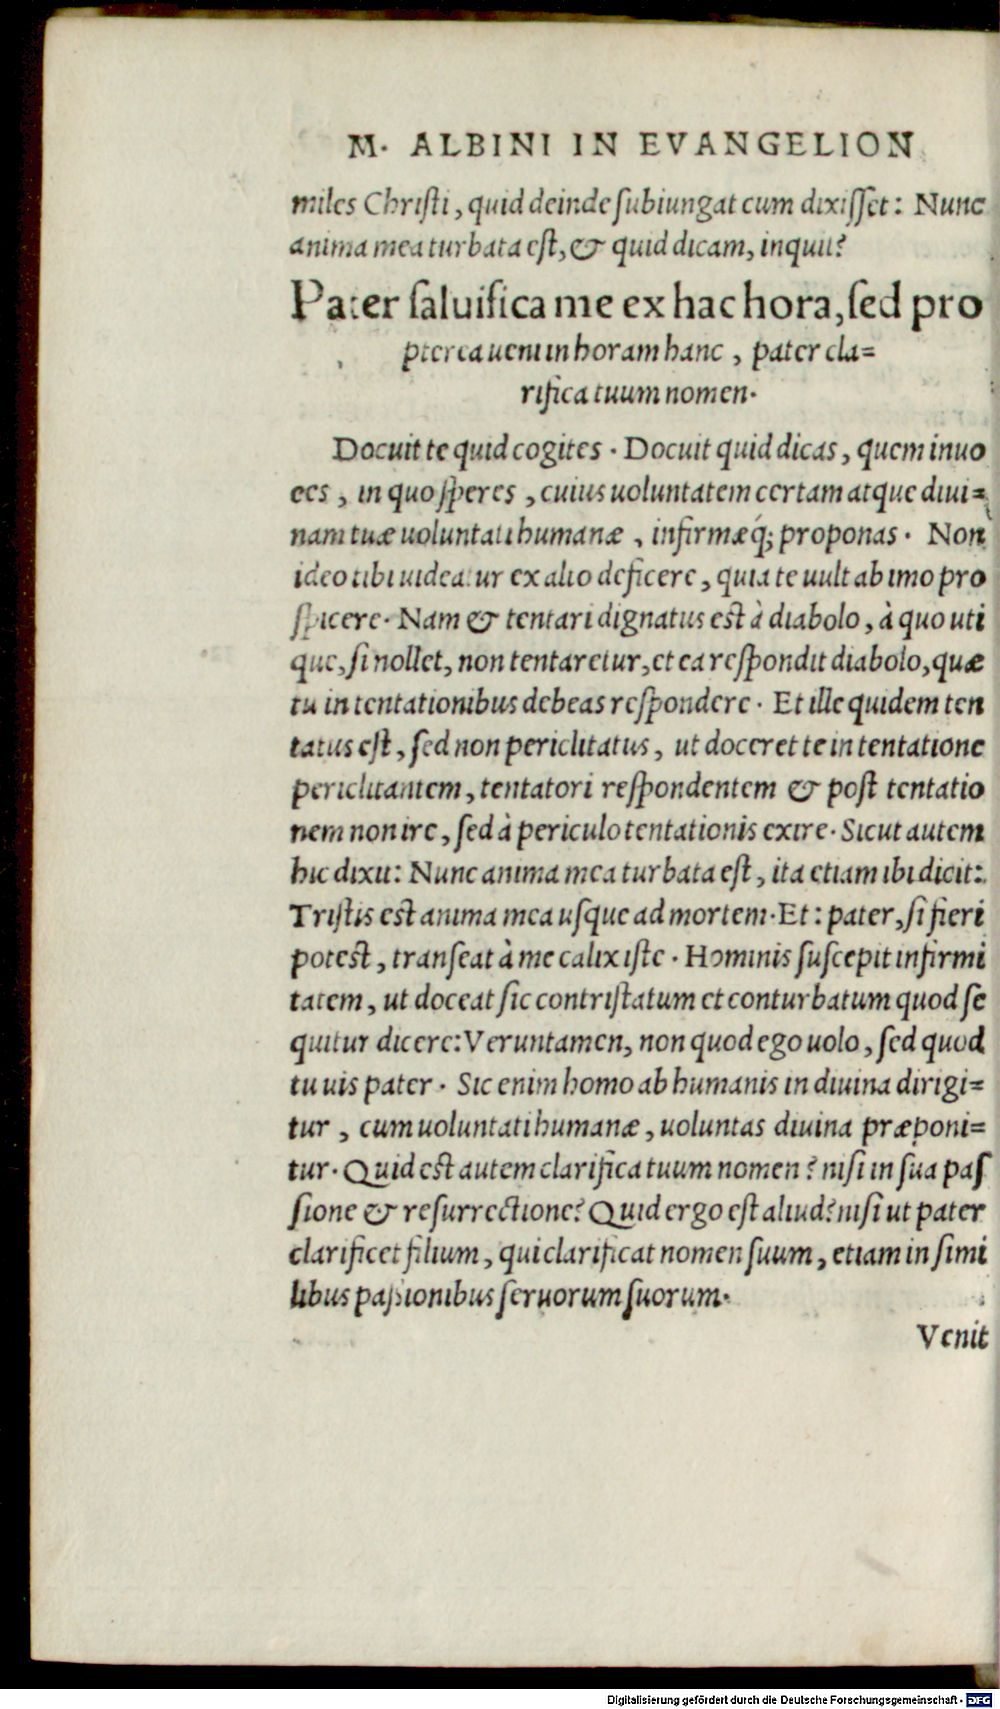 M. ALBINI IN EVANGELION
miles Christi, quid deinde subiungat cum dixisset: Nunc
anima mea turbata est, & quid dicam, inquit?
Pater saluifica me ex hac hora, sed pro
pterea ueni in horam hanc, pater cla=
rifica tuum nomen.
Docuit te quid cogites. Docuit quid dicas, quem inuo
ces, in quo speres, cuius uoluntatem certam atque diui=
nam tuæ uoluntati humanæ, infirmæq́; proponas. Non
ideo tibi uideatur ex alto deficere, quia te uult ab imo pro
spicere. Nam & tentari dignatus est à diabolo, à quo uti
que, si nollet, non tentaretur, et ea respondit diabolo, quæ
tu in tentationibus debeas respondere. Et ille quidem ten
tatus est, sed non periclitatus, ut doceret te in tentatione
periclitantem, tentatori respondentem & post tentatio
nem non ire, sed à periculo tentationis exire. Sicut autem
hic dixit: Nunc anima mea turbata est, ita etiam ibi dicit:
Tristis est anima mea usque ad mortem. Et: pater, si fieri
potest, transeat à me calix iste. Hominis suscepit infirmi
tatem, ut doceat sic contristatum et conturbatum quod se
quitur dicere: Veruntamen, non quod ego uolo, sed quod
tu uis pater. Sic enim homo ab humanis in diuina dirigi=
tur, cum uoluntati humanæ, uoluntas diuina præponi=
tur. Quid est autem clarifica tuum nomen? nisi in sua pas
sione & resurrectione? Quid ergo est aliud? nisi ut pater
clarificet filium, qui clarificat nomen suum, etiam in simi
libus passionibus seruorum suorum.
Venit
Digitalisierung gefördert durch die Deutsche Forschungsgemeinschaft - DFG